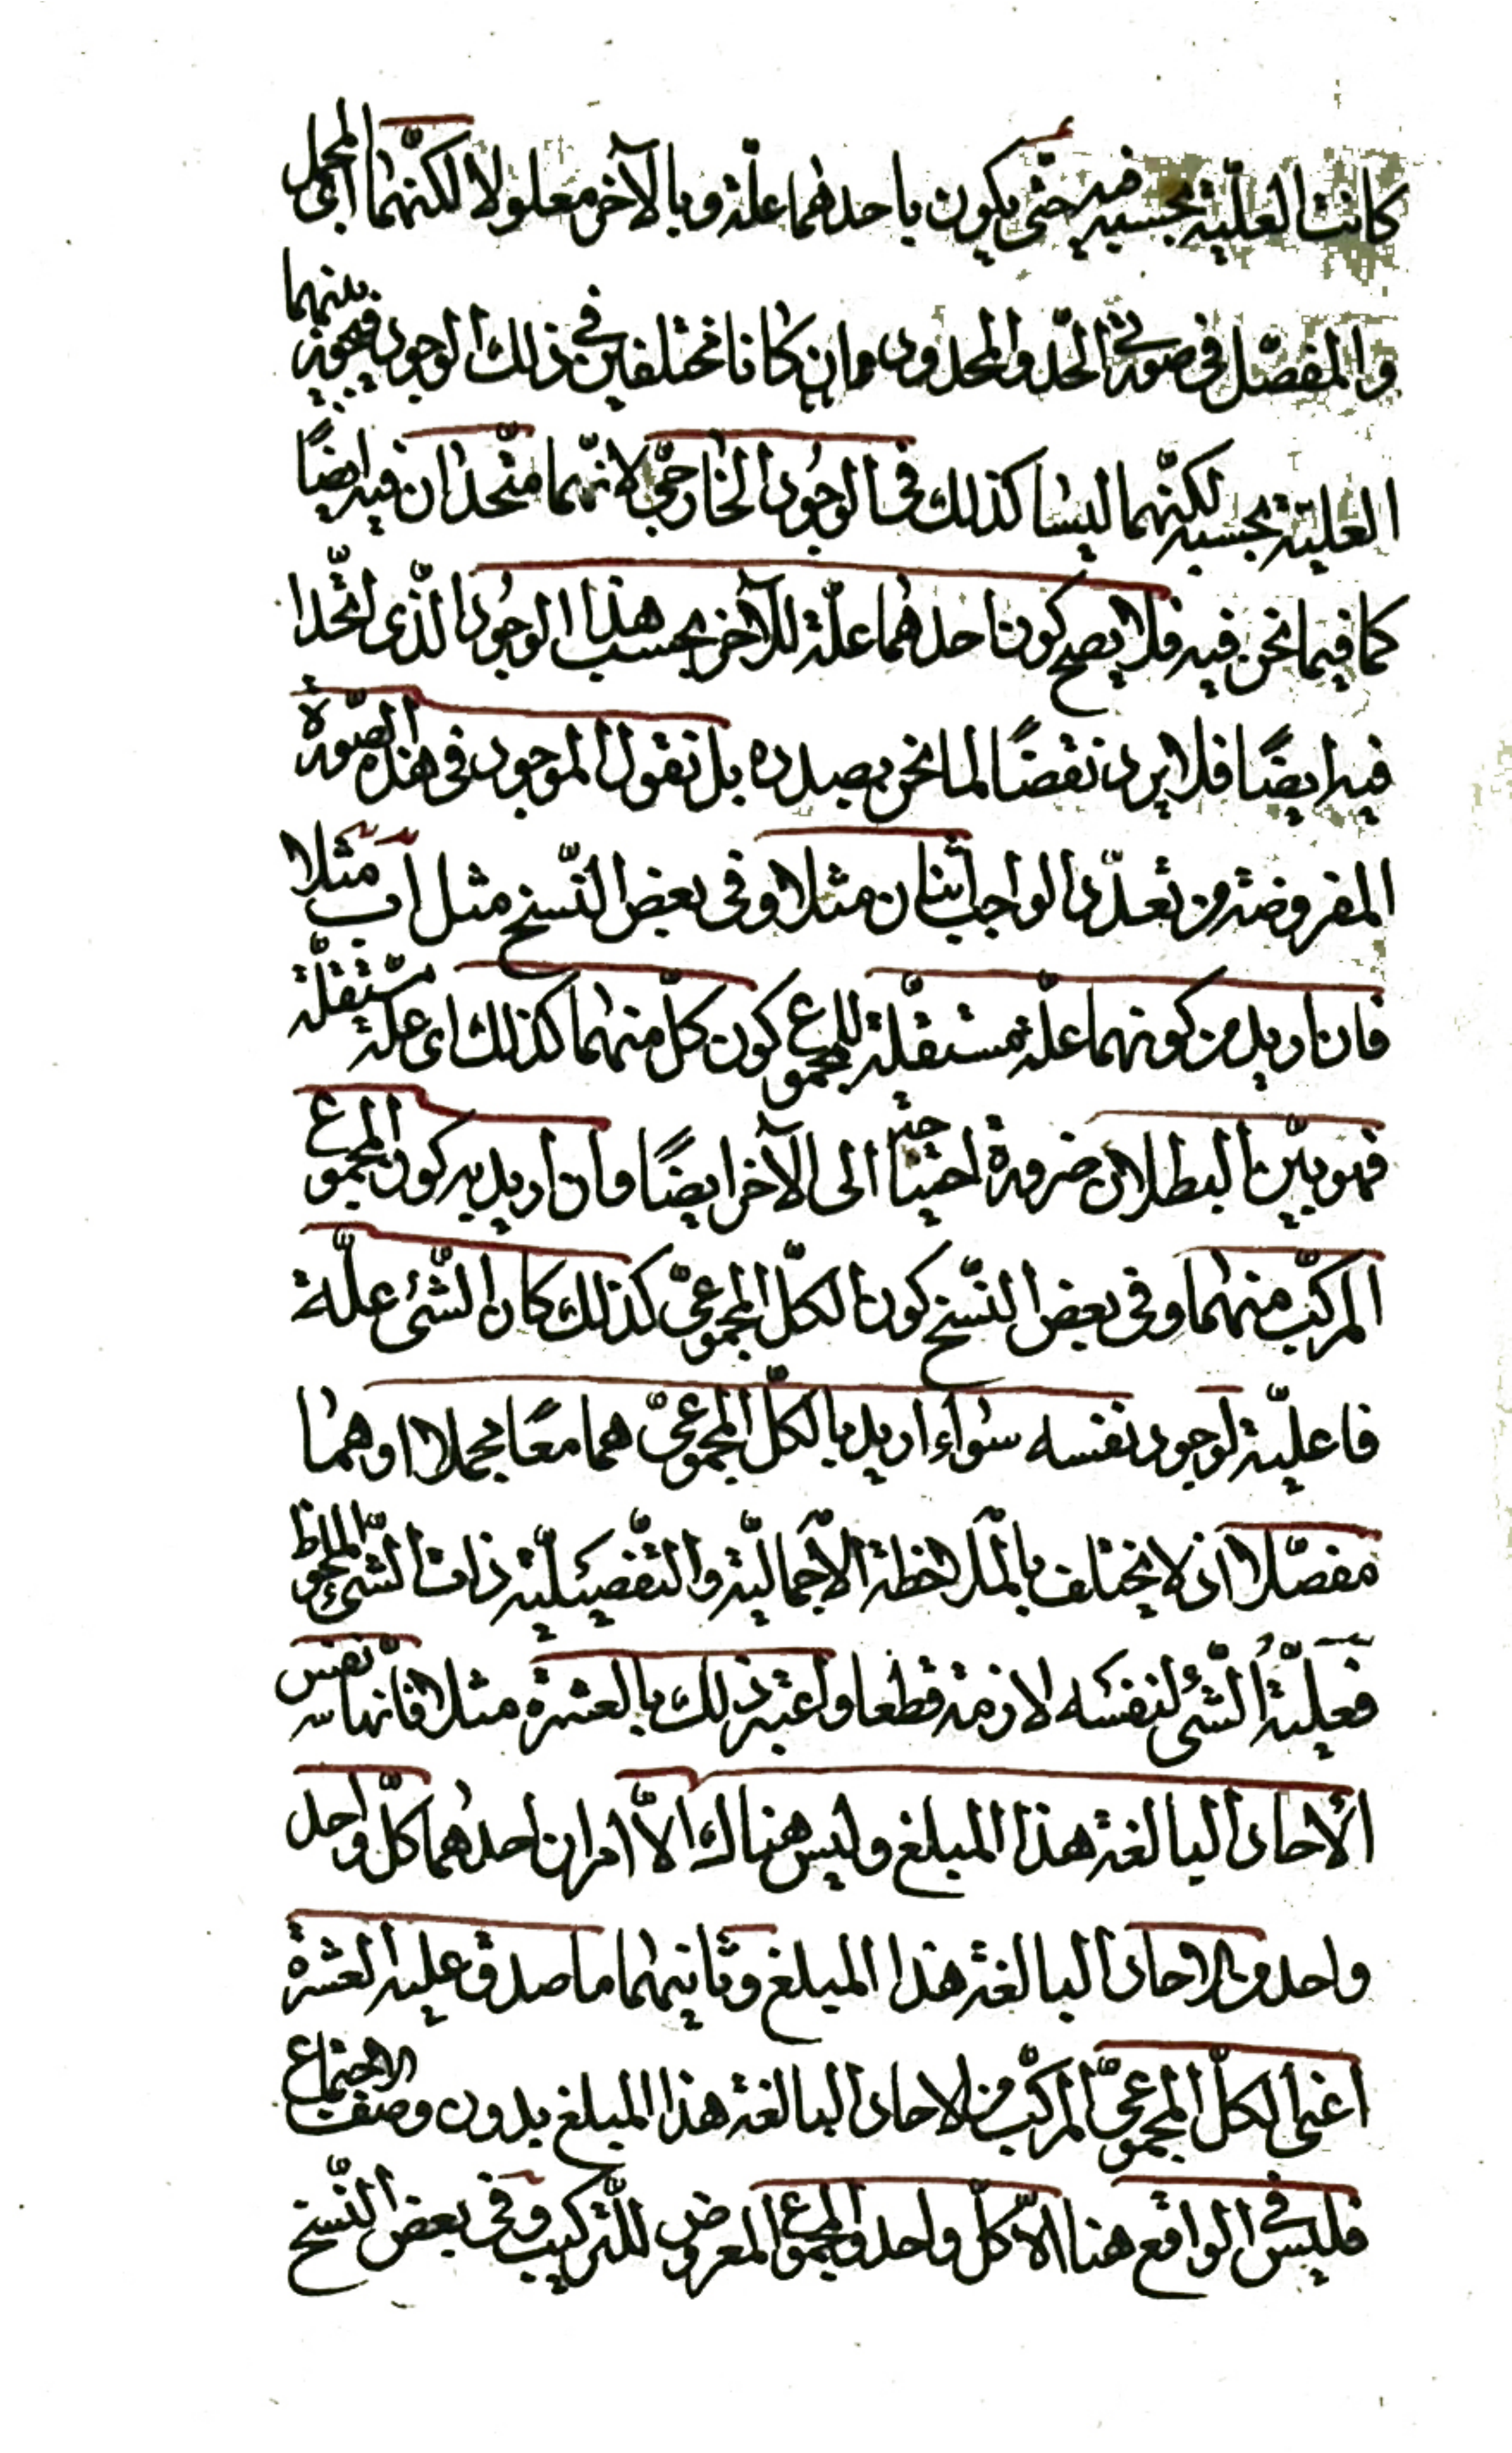 كانت العلّية بحسبه فيه حتّى يكون باحدهما علّة وبالآخر معلولا لكنّهما اى المجمل
والمفصّل في صورتى الحدّ والمحدود وان كانا مختلفين في ذلك الوجود فيجوز بينهما
العلية بحسبه لكنّهما ليسا كذلك في الوجود الخارجىّ لانّهما متّحدان فيه ايضًا
كما فيما نحن فيه فلا يصح كون احدهما علّة للآخر بحسب هذا الوجود الّذى اتّحدا
فيه ايضًا فلا يرد نقضًا لما نحن بصدده بل نقول الموجود في هذه الصّورة
المفروضة من تعدّد الواجب اثنان مثلا وفى بعض النّسخ مثل آ ب مثلا
فان اريد من كونهما علّة مستقلّة للمجموع كون كلّ منهما كذلك اى علّة مستقلّة
فهو بيّن البطلان ضرورة احتياجه الى الآخر ايضًا وان اريد به كون المجموع
المركّب منهما وفى بعض النّسخ كون الكلّ المجموعىّ كذلك كان الشّئ علّة
فاعليّة لوجود نفسه سواء اريد بالكلّ المجموعىّ هما معًا مجملا او هما
مفصّلا اذ لا يختلف بالملاحظة الاجماليّة والتّفصيليّة ذات الشّئ الملحوظ
فعليّة الشّئ لنفسه لازمة قطعا واعتبر ذلك بالعشرة مثلا فانّها نفس
الآحاد البالغة هذا المبلغ وليس هناك الاّ امران احدهما كلّ واحد
واحد من الاحاد البالغة هذا المبلغ وثانيهما ما صدق عليه العشرة
اعنى الكلّ المجموعىّ المركّب من الاحاد البالغة هذا المبلغ بدون وصف الاجتماع
فليس في الواقع هنا الاّ كلّ واحد والمجموع المعروض للتّركيب وفى بعض النّسخ